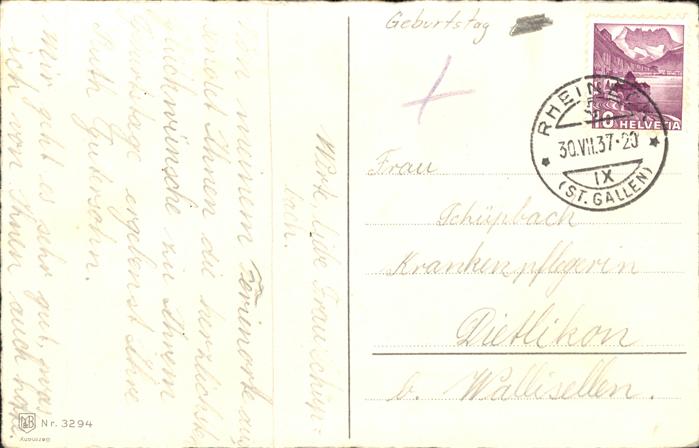 Geburtstag
RHEINECK
30.VII.37·20
IX
(ST. GALLEN)
10 HELVETIA
Frau
Schüpbach
Krankenpflegerin
Dietlikon
b. Wallisellen.
Wrte, liebe Frau Schüp=
bach.
Von meinem Ferienorte aus
sendet Ihnen die herzlichsten
Glückwünsche zu Ihrem
Geburtstage ergebenst Ihre
Ruth
Mir geht es sehr gut, was
ich von Ihnen auch hoffe
Nr. 3294
Germany